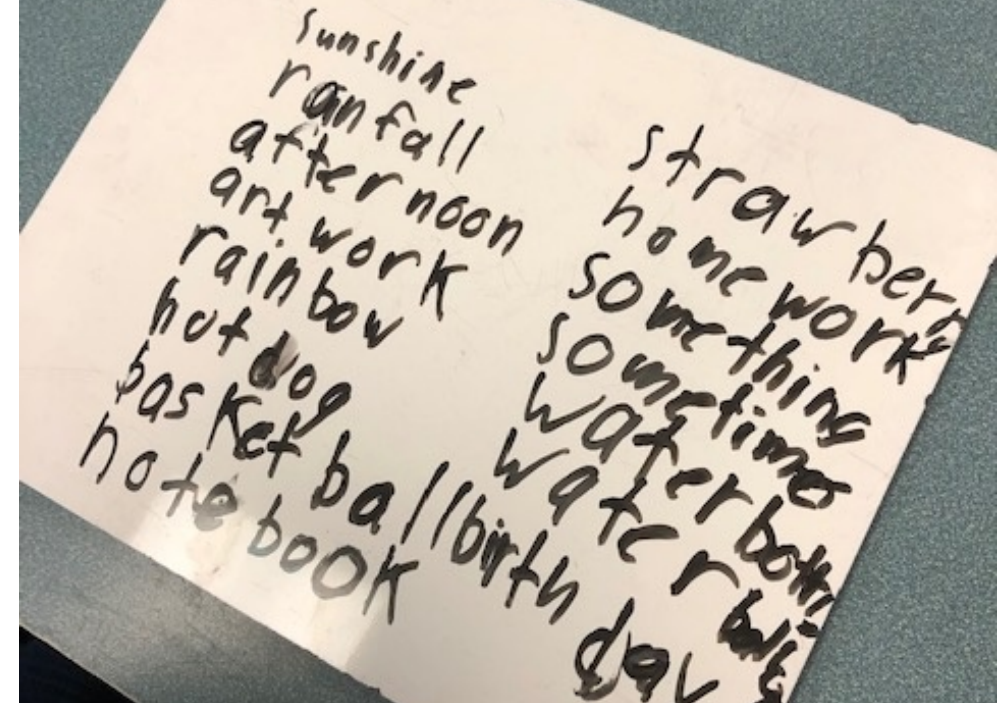 sunshine
ranfall
afternoon
art work
rainbow
hot dog
basket ball
note book
strawberry
home work
something
sometimes
water bottle
water
birth day